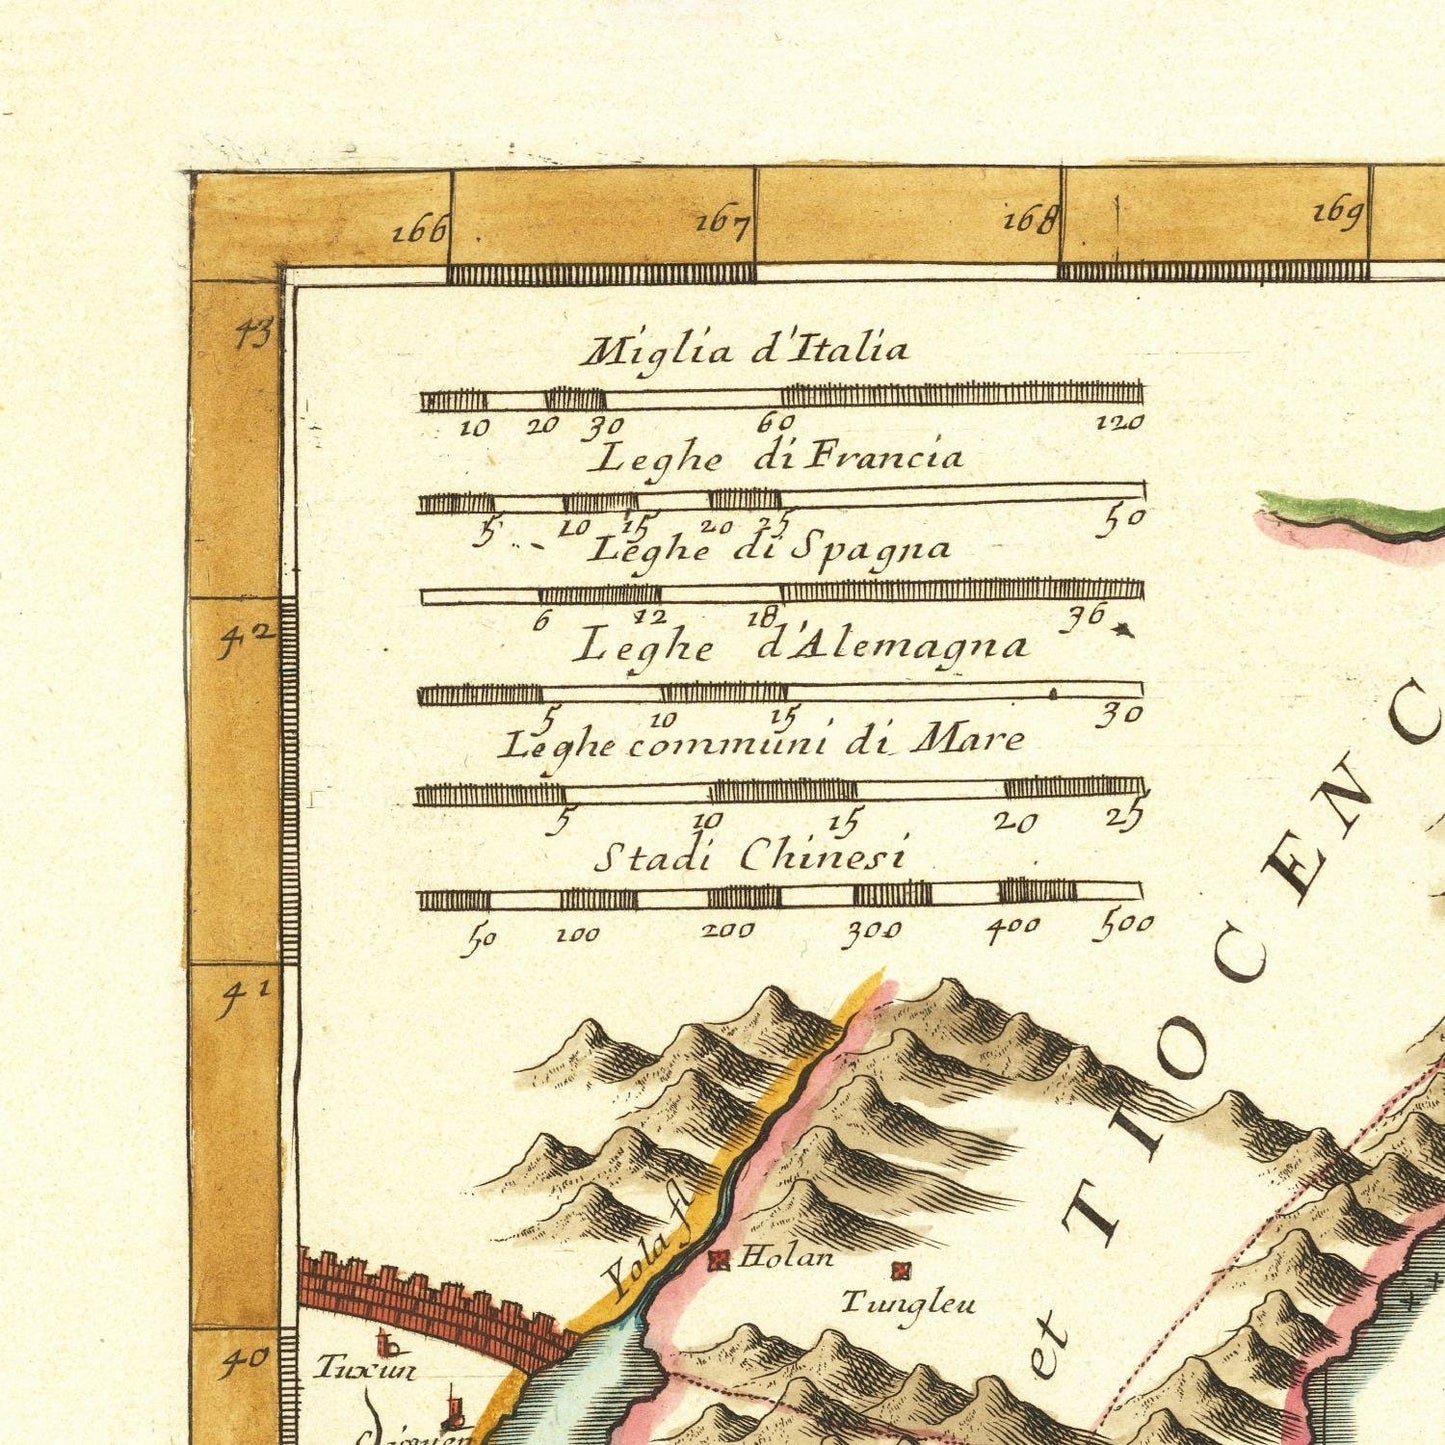 166 167 168 169
43
Miglia d'Italia
10 20 30 60 120
Leghe di Francia
5 10 15 20 25 50
Leghe di Spagna
6 12 18 36
42
Leghe d'Alemagna
5 10 15 30
Leghe communi di Mare
5 10 15 20 25
Stadi Chinesi
50 100 200 300 400 500
41
TIOCENC
et
Yola fl
Holan
Tungleu
40
Tuxun